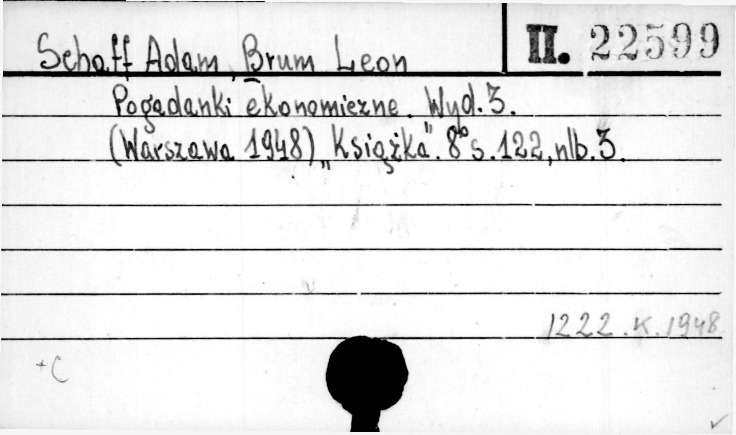 Schaff Adam, Brum Leon II. 22599
Pogadanki ekonomiczne. Wyd. 3.
(Warszawa 1948) „Książka". 8° s. 122, nlb. 3.
1222.K.1948
+C